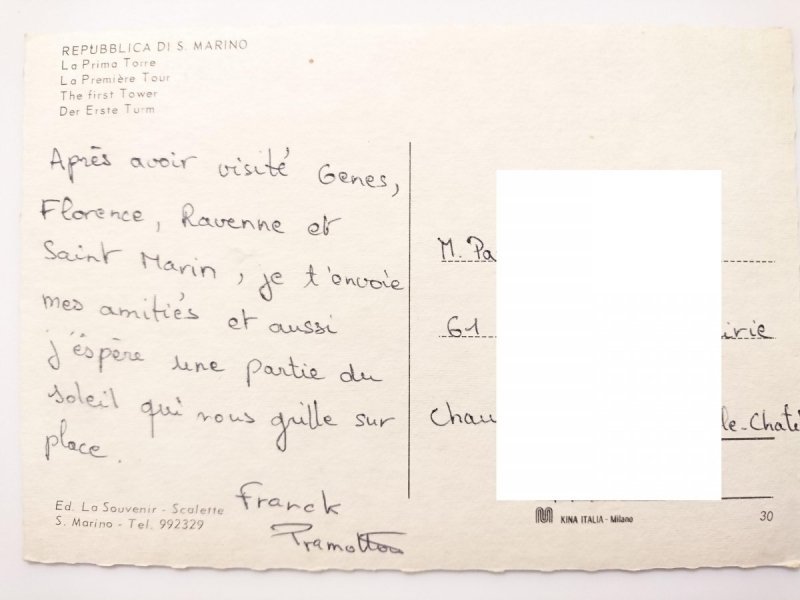 REPUBBLICA DI S. MARINO
La Prima Torre
La Première Tour
The first Tower
Der Erste Turm
Après avoir visité Genes,
Florence, Ravenne et
Saint Marin, je t'envoie
mes amitiés et aussi
j'éspère une partie du
soleil qui nous grille sur
place.
Franck
Ed. La Souvenir - Scalette
S. Marino - Tel. 992329
M. Pa
61
KINA ITALIA - Milano
30